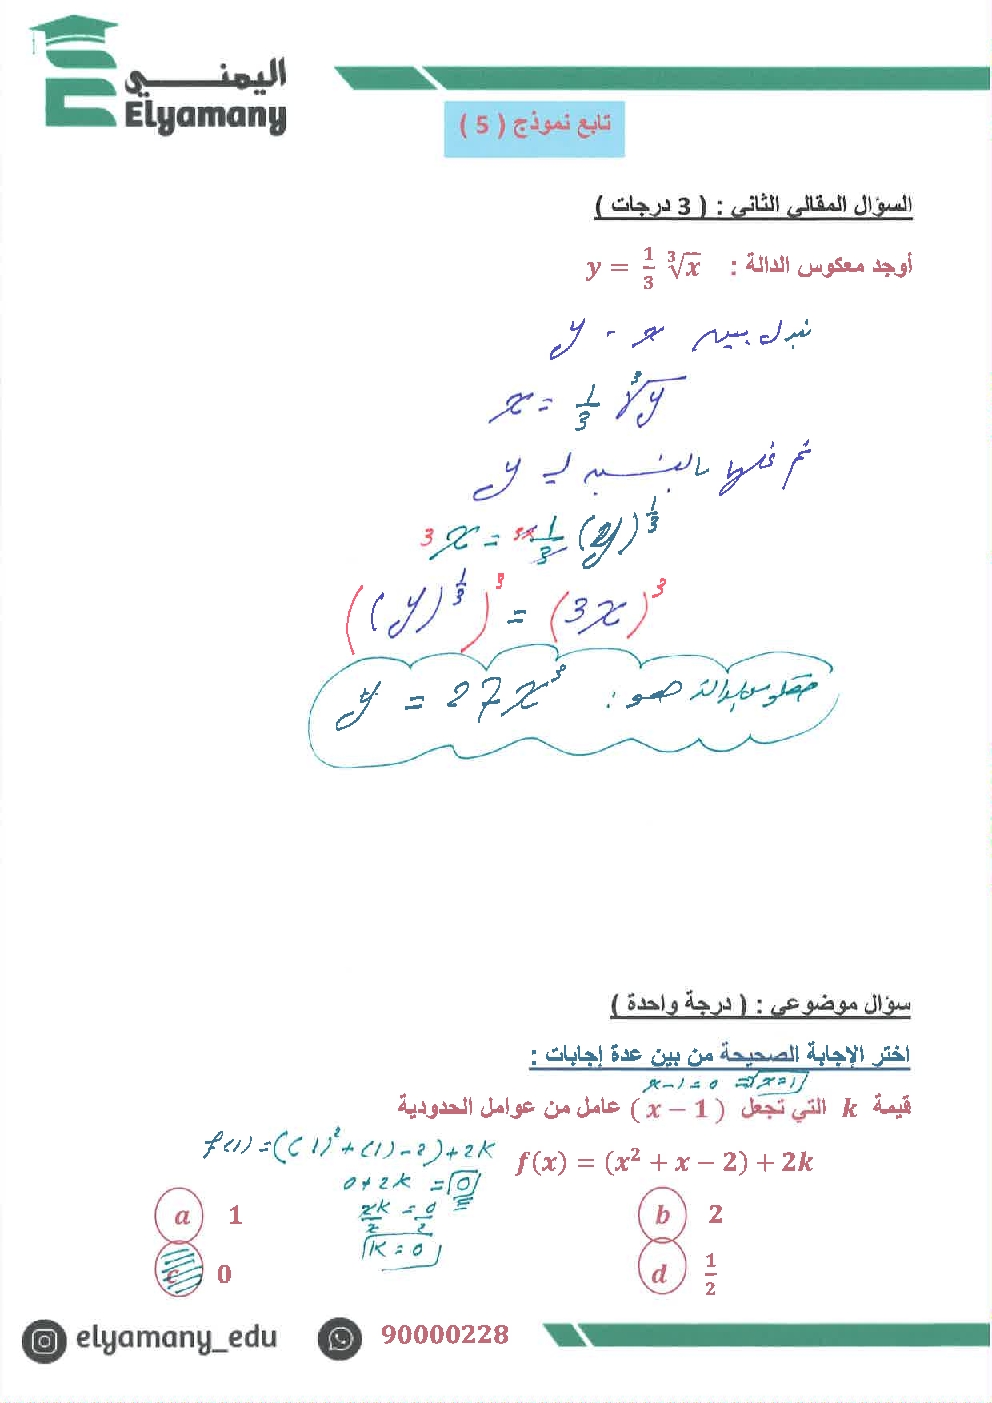 اليمني
Elyamany
تابع نموذج ( 5 )
السؤال المقالي الثاني : ( 3 درجات )
أوجد معكوس الدالة : y = 1/3 ∛x
نبدل بين x - y
x = 1/3 ∛y
ثم نحلها بالنسبه لـ y
3 x = 3x 1/3 (y)^1/3
((y)^1/3)^3 = (3x)^3
معكوس الدالة هو : y = 27x^3
سؤال موضوعي : ( درجة واحدة )
اختر الإجابة الصحيحة من بين عدة إجابات :
x-1=0 ⇒ x=1
قيمة k التي تجعل ( x − 1 ) عامل من عوامل الحدودية
f(1) = ((1)²+(1)-2)+2K
f(x) = (x² + x − 2) + 2k
0+2K = 0
2K/2 = 0/2
K = 0
a 1
b 2
c 0
d 1/2
elyamany_edu 90000228